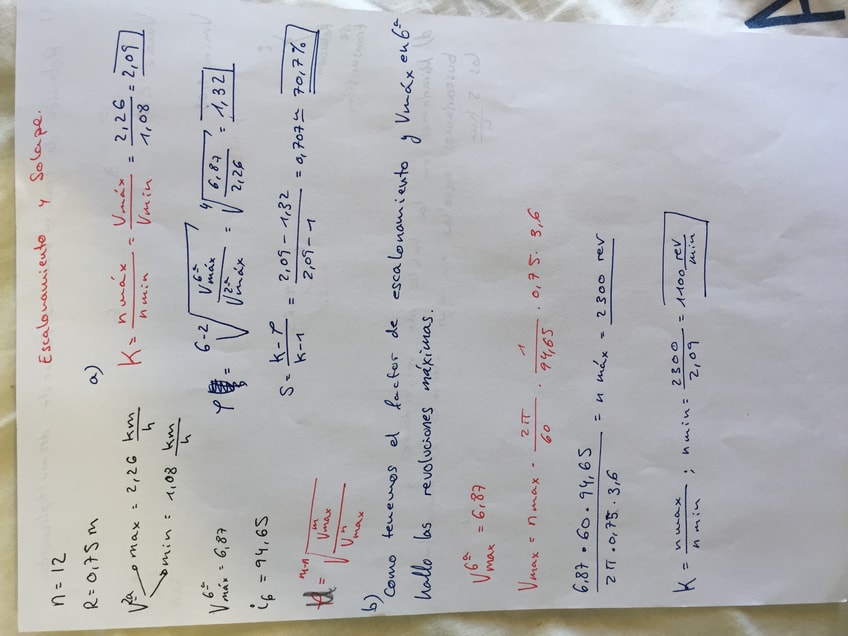 Escalonamiento y Solape.
n = 12
R = 0,75 m
V2ª max = 2,26 km/h
min = 1,08 km/h
V6ª máx = 6,87
i6 = 94,65
m-n√(Vm max / Vn max)
a)
K = n máx / n min = V máx / V min = 2,26 / 1,08 = 2,09
φ = 6-2√(V6ª máx / V2ª máx) = 4√(6,87 / 2,26) = 1,32
S = k-φ / k-1 = 2,09 - 1,32 / 2,09 - 1 = 0,707 ≈ 70,7%
b) Como tenemos el factor de escalonamiento y Vmáx en 6ª
hallo las revoluciones máximas.
V6ª max = 6,87
Vmax = n max · 2π / 60 · 1 / 94,65 · 0,75 · 3,6
6,87 · 60 · 94,65 / 2π · 0,75 · 3,6 = n máx = 2300 rev
K = n max / n min ; n min = 2300 / 2,09 = 1100 rev/min